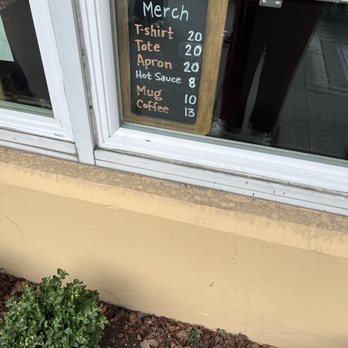 Merch
T-shirt 20
Tote 20
Apron 20
Hot Sauce 8
Mug 10
Coffee 13